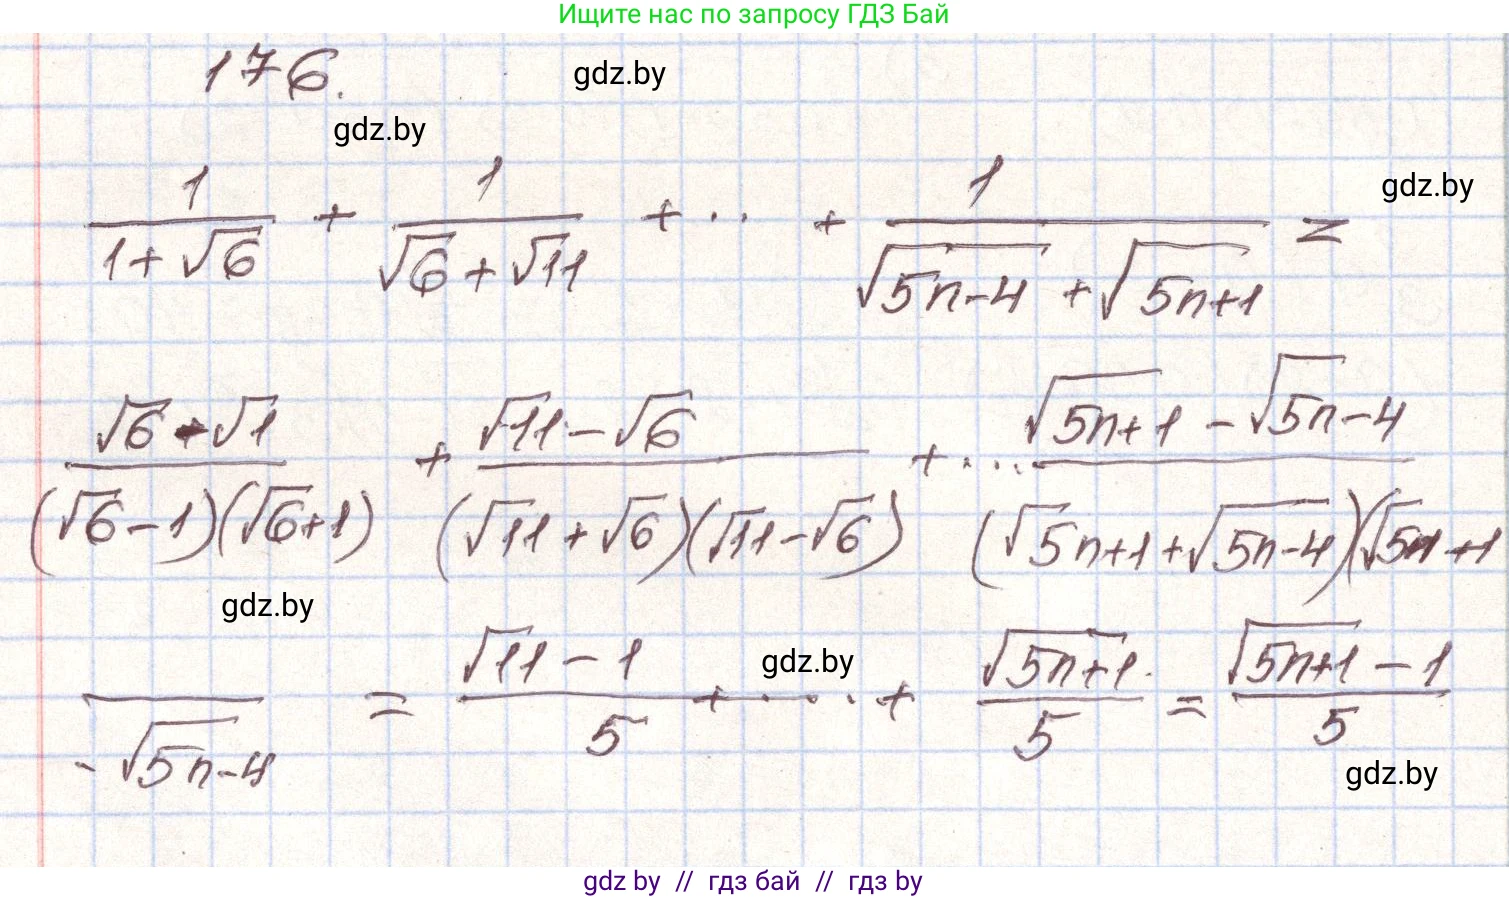 Ищите нас по запросу ГДЗ Бай
176.
gdz.by
gdz.by
gdz.by
1/(1+√6) + 1/(√6+√11) + .. + 1/(√(5n-4) + √(5n+1)) =
(√6-√1)/((√6-1)(√6+1)) + (√11-√6)/((√11+√6)(√11-√6)) + ... (√(5n+1) - √5n-4)/((√5n+1 + √(5n-4))(√5n+1
gdz.by
gdz.by
- √5n-4 = (√11-1)/5 + .... + √(5n+1)/5 = (√(5n+1) - 1)/5
gdz.by
gdz by // гдз бай // гдз by